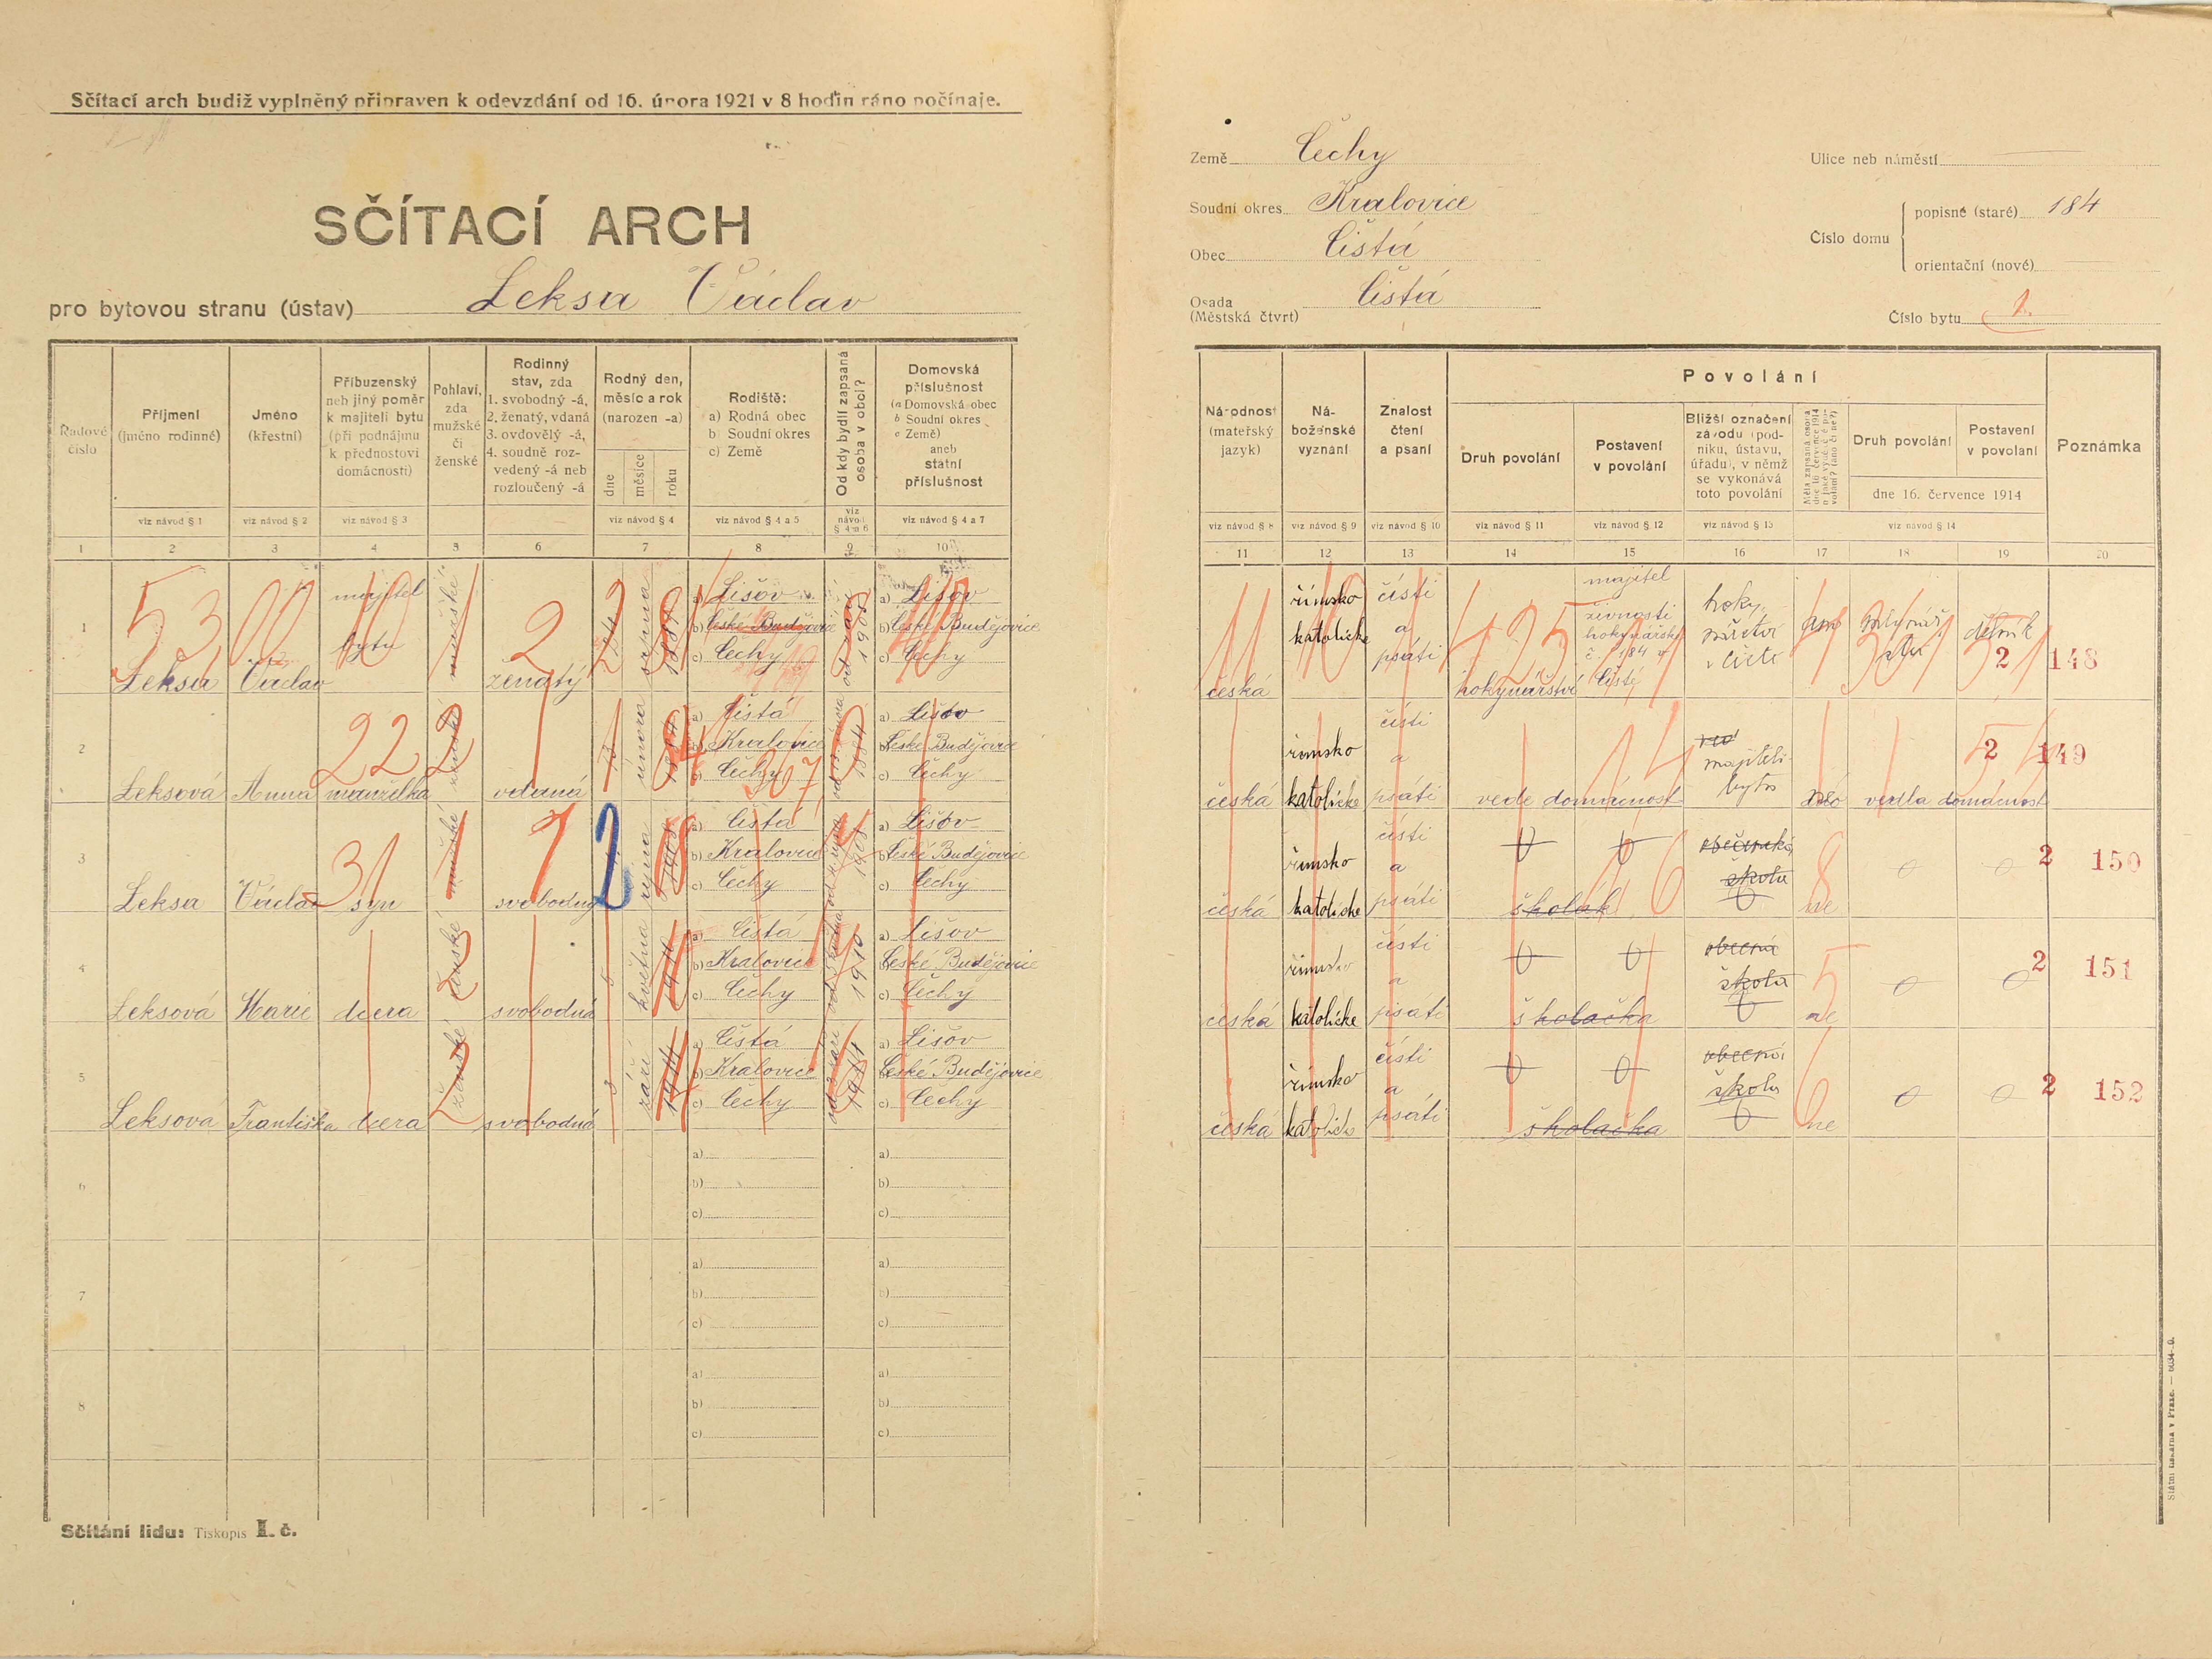 Sčítací arch budiž vyplněný připraven k odevzdání od 16. února 1921 v 8 hodin ráno počínaje.
SČÍTACÍ ARCH
pro bytovou stranu (ústav) Leksa Václav
Země Čechy
Soudní okres Kralovice
Obec Čistá
Osada Čistá
(Městská čtvrt)
Ulice neb náměstí
Číslo domu
popisné (staré) 184
orientační (nové)
Číslo bytu 1.
Řadové číslo
Příjmení (jméno rodinné)
Jméno (křestní)
Příbuzenský neb jiný poměr k majiteli bytu (při podnájmu k přednostovi domácnosti)
Pohlaví, zda mužské či ženské
Rodinný stav, zda 1. svobodný -á, 2. ženatý, vdaná 3. ovdovělý -á, 4. soudně rozvedený -á neb rozloučený -á
Rodný den, měsíc a rok (narozen -a)
dne měsíce roku
Rodiště: a) Rodná obec b) Soudní okres c) Země
Od kdy bydlí zapsaná osoba v obci?
Domovská příslušnost (a Domovská obec b Soudní okres c Země) aneb státní příslušnost
viz návod § 1 viz návod § 2 viz návod § 3 viz návod § 4 viz návod § 4 a 5 viz návod § 4 a 6 viz návod § 4 a 7
1 2 3 4 5 6 7 8 9 10
Národnost (mateřský jazyk)
Náboženské vyznání
Znalost čtení a psaní
Povolání
Druh povolání
Postavení v povolání
Bližší označení závodu (podniku, ústavu, úřadu), v němž se vykonává toto povolání
Měla zapsaná osoba dne 16. července 1914
Druh povolání
Postavení v povolaní
dne 16. července 1914
Poznámka
viz návod § 8 viz návod § 9 viz návod § 10 viz návod § 11 viz návod § 12 viz návod § 13 viz návod § 14
11 12 13 14 15 16 17 18 19 20
1 Leksa Václav majitel bytu mužské ženatý 24 srpna
a) Lišov
b) České Budějovice
c) Čechy
1908
a) Lišov
b) České Budějovice
c) Čechy
česká římsko katolické čísti a psáti hokynářství majitel živnosti hokynářské č. 184 v Čisté
hokynářství v Čisté ano dělník 2 148
2 Leksová Anna manželka ženské vdaná února
a) Čistá
b) Kralovice
c) Čechy
1884
a) Lišov
České Budějovice
c) Čechy
česká římsko katolické čísti a psáti vede domácnost majiteli bytu vedla domácnost 2 149
3 Leksa Václav syn mužské svobodný října
a) Čistá
b) Kralovice
c) Čechy
1908
a) Lišov
b) České Budějovice
c) Čechy
česká římsko katolické čísti a psáti školák škola ne 0 0 2 150
4 Leksová Marie dcera ženské svobodná května 1910
a) Čistá
b) Kralovice
c) Čechy
1910
a) Lišov
České Budějovice
c) Čechy
česká římsko katolické čísti a psáti školačka obecná škola ne 0 0 2 151
5 Leksova Františka dcera ženské svobodná 3 září
a) Čistá
b) Kralovice
c) Čechy
a) Lišov
České Budějovice
c) Čechy
česká římsko katolické čísti a psáti školačka obecná škola ne 0 0 2 152
6
a)
b)
c)
a)
b)
c)
7
a)
b)
c)
a)
b)
c)
8
a)
b)
c)
a)
b)
c)
Sčítání lidu: Tiskopis I. č.
Státní tiskárna v Praze.